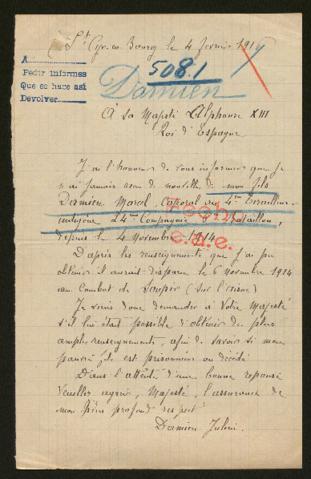 St Cyr-en-Bourg le 4 février 191
A
Pedir informes
Que se hace así
Devolver
5081
Damien
À Sa Majesté Alphonse XIII
Roi d'Espagne
J'ai l'honneur de vous informer que je
n'ai jamais reçu de nouvelle de mon fils
Damien Marcel, Caporal au 4me Tirailleur
indigène 14e Compagnie Bataillon,
depuis le 4 Novembre 1914
D'après les renseignements que j'ai pu
obtenir il aurait disparu le 6 novembre 1914
au Combat de Soupir (sur l'aisne)
Je viens donc demander à Votre Majesté
s'il lui était possible d'obtenir de plus
amples renseignements, afin de savoir si mon
pauvre fils est prisonnier ou décédé
Dans l'attente d'une bonne réponse
Veuillez agréer, Majesté, l'assurance de
mon plus profond respect
Damien